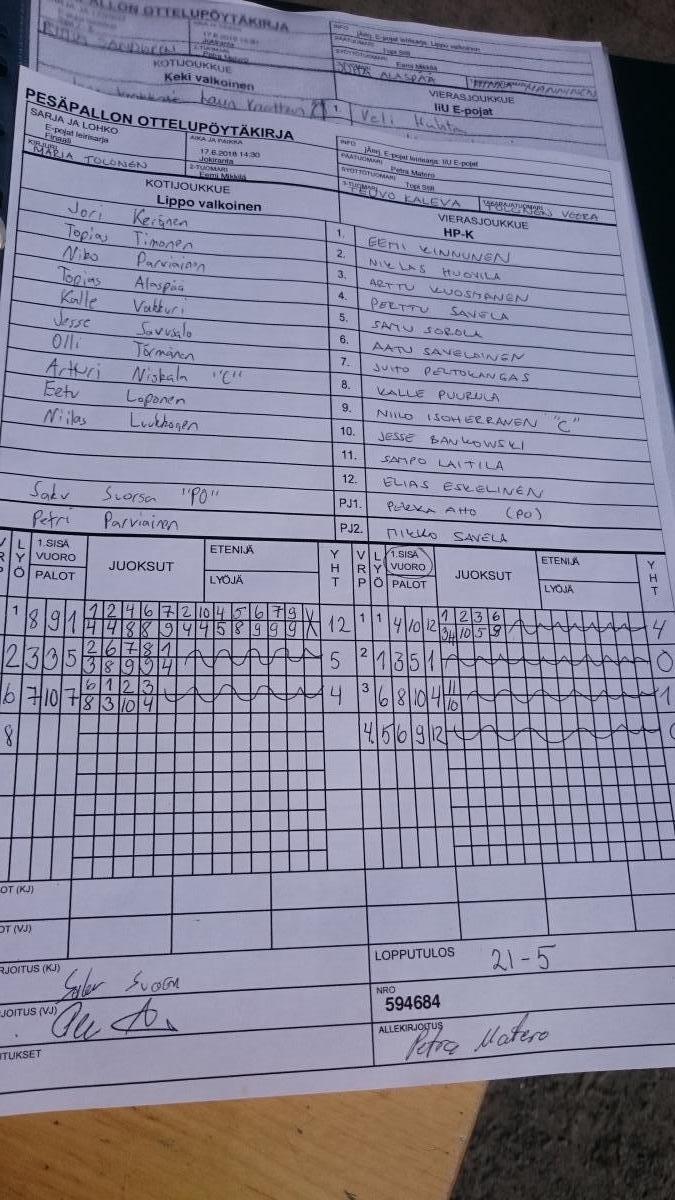 PESÄPALLON OTTELUPÖYTÄKIRJA
KOTIJOUKKUE
Keki valkoinen
VIERASJOUKKUE
IiU E-pojat
1. Veli Huhta
PESÄPALLON OTTELUPÖYTÄKIRJA
SARJA JA LOHKO
E-pojat leirisarja
Finaali
AIKA JA PAIKKA
17.6.2018 14:30
Jokiranta
INFO
jÄknj. E-pojat leirisarja: IiU E-pojat
PÄÄTUOMARI Petra Matero
KIRJURI
MARIA TOLONEN
2-TUOMARI
Eemi Mikkilä
SYÖTTÖTUOMARI Topi Still
3-TUOMARI TEUVO KALEVA
TAKARAJATUOMARI
TOLONEN VEERA
KOTIJOUKKUE
Lippo valkoinen
VIERASJOUKKUE
HP-K
Jori Keränen 1. EEMI KINNUNEN
Topias Timonen 2. NIKLAS HUOVILA
Niko Parviainen 3. ARTTU KUOSMANEN
Topias Alaspää 4. PERTTU SAVELA
Kalle Vatturi 5. SAMU SOROLA
Jesse Savusalo 6. AATU SAVELAINEN
Olli Törmänen 7. JUITO PELTOKANGAS
Artturi Niskala "C" 8. KALLE PUURULA
Eetu Loponen 9. NIILO ISOHERRANEN "C"
Niilas Luukkonen 10. JESSE BANKOWSKI
11. SAMPO LAITILA
12. ELIAS ESKELINEN
Saku Suorsa "PO" PJ1. PEKKA AHO (PO)
Petri Parviainen PJ2. MIKKO SAVELA
LYÖ 1.SISÄVUORO PALOT JUOKSUT ETENIJÄ LYÖJÄ YHT VRP LYÖ 1.SISÄVUORO PALOT JUOKSUT ETENIJÄ LYÖJÄ YHT
1 8 9 1 1 2 4 6 7 2 10 4 5 6 7 9 X 12 1 1 4 10 12 1 2 3 6 4
4 4 8 8 9 4 4 5 8 9 9 9 3/4 10 5 8
2 3 3 5 2 6 7 8 1 5 2 1 3 5 1 0
3 8 9 9 4
6 7 10 7 6 1 2 3 4 3 6 8 10 4 11 1
8 3 10 4 10
8 4 5 6 9 12
OT (KJ)
OT (VJ)
RJOITUS (KJ) Saku Suorsa
LOPPUTULOS 21-5
JOITUS (VJ)
NRO
594684
ITUKSET
ALLEKIRJOITUS
Petra Matero